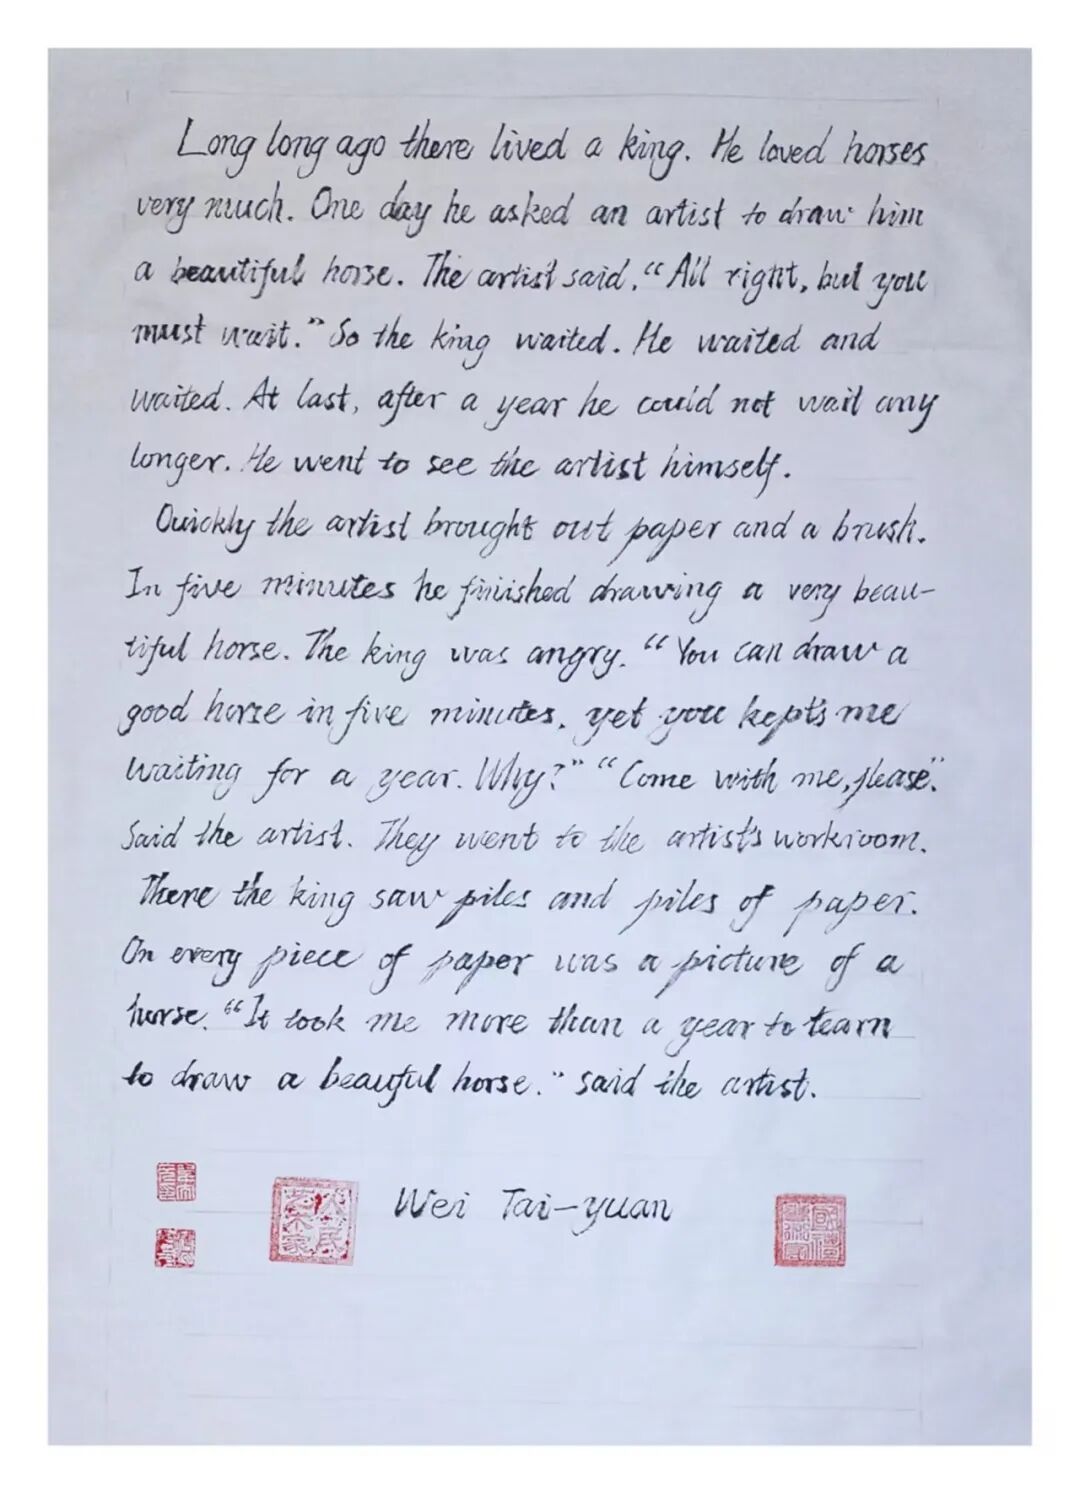 Long long ago there lived a king. He loved horses
very much. One day he asked an artist to draw him
a beautiful horse. The artist said. “All right, but you
must wait.” So the king waited. He waited and
waited. At last, after a year he could not wait any
longer. He went to see the artist himself.
Quickly the artist brought out paper and a brush.
In five minutes he finished drawing a very beau-
tiful horse. The king was angry. “You can draw a
good horse in five minutes. yet you kepts me
waiting for a year. Why?” “Come with me, please.”
Said the artist. They went to the artist's workroom.
There the king saw piles and piles of paper.
On every piece of paper was a picture of a
horse. “It took me more than a year to learn
to draw a beauful horse.” said the artist.
Wei Tai-yuan
人民
艺术家